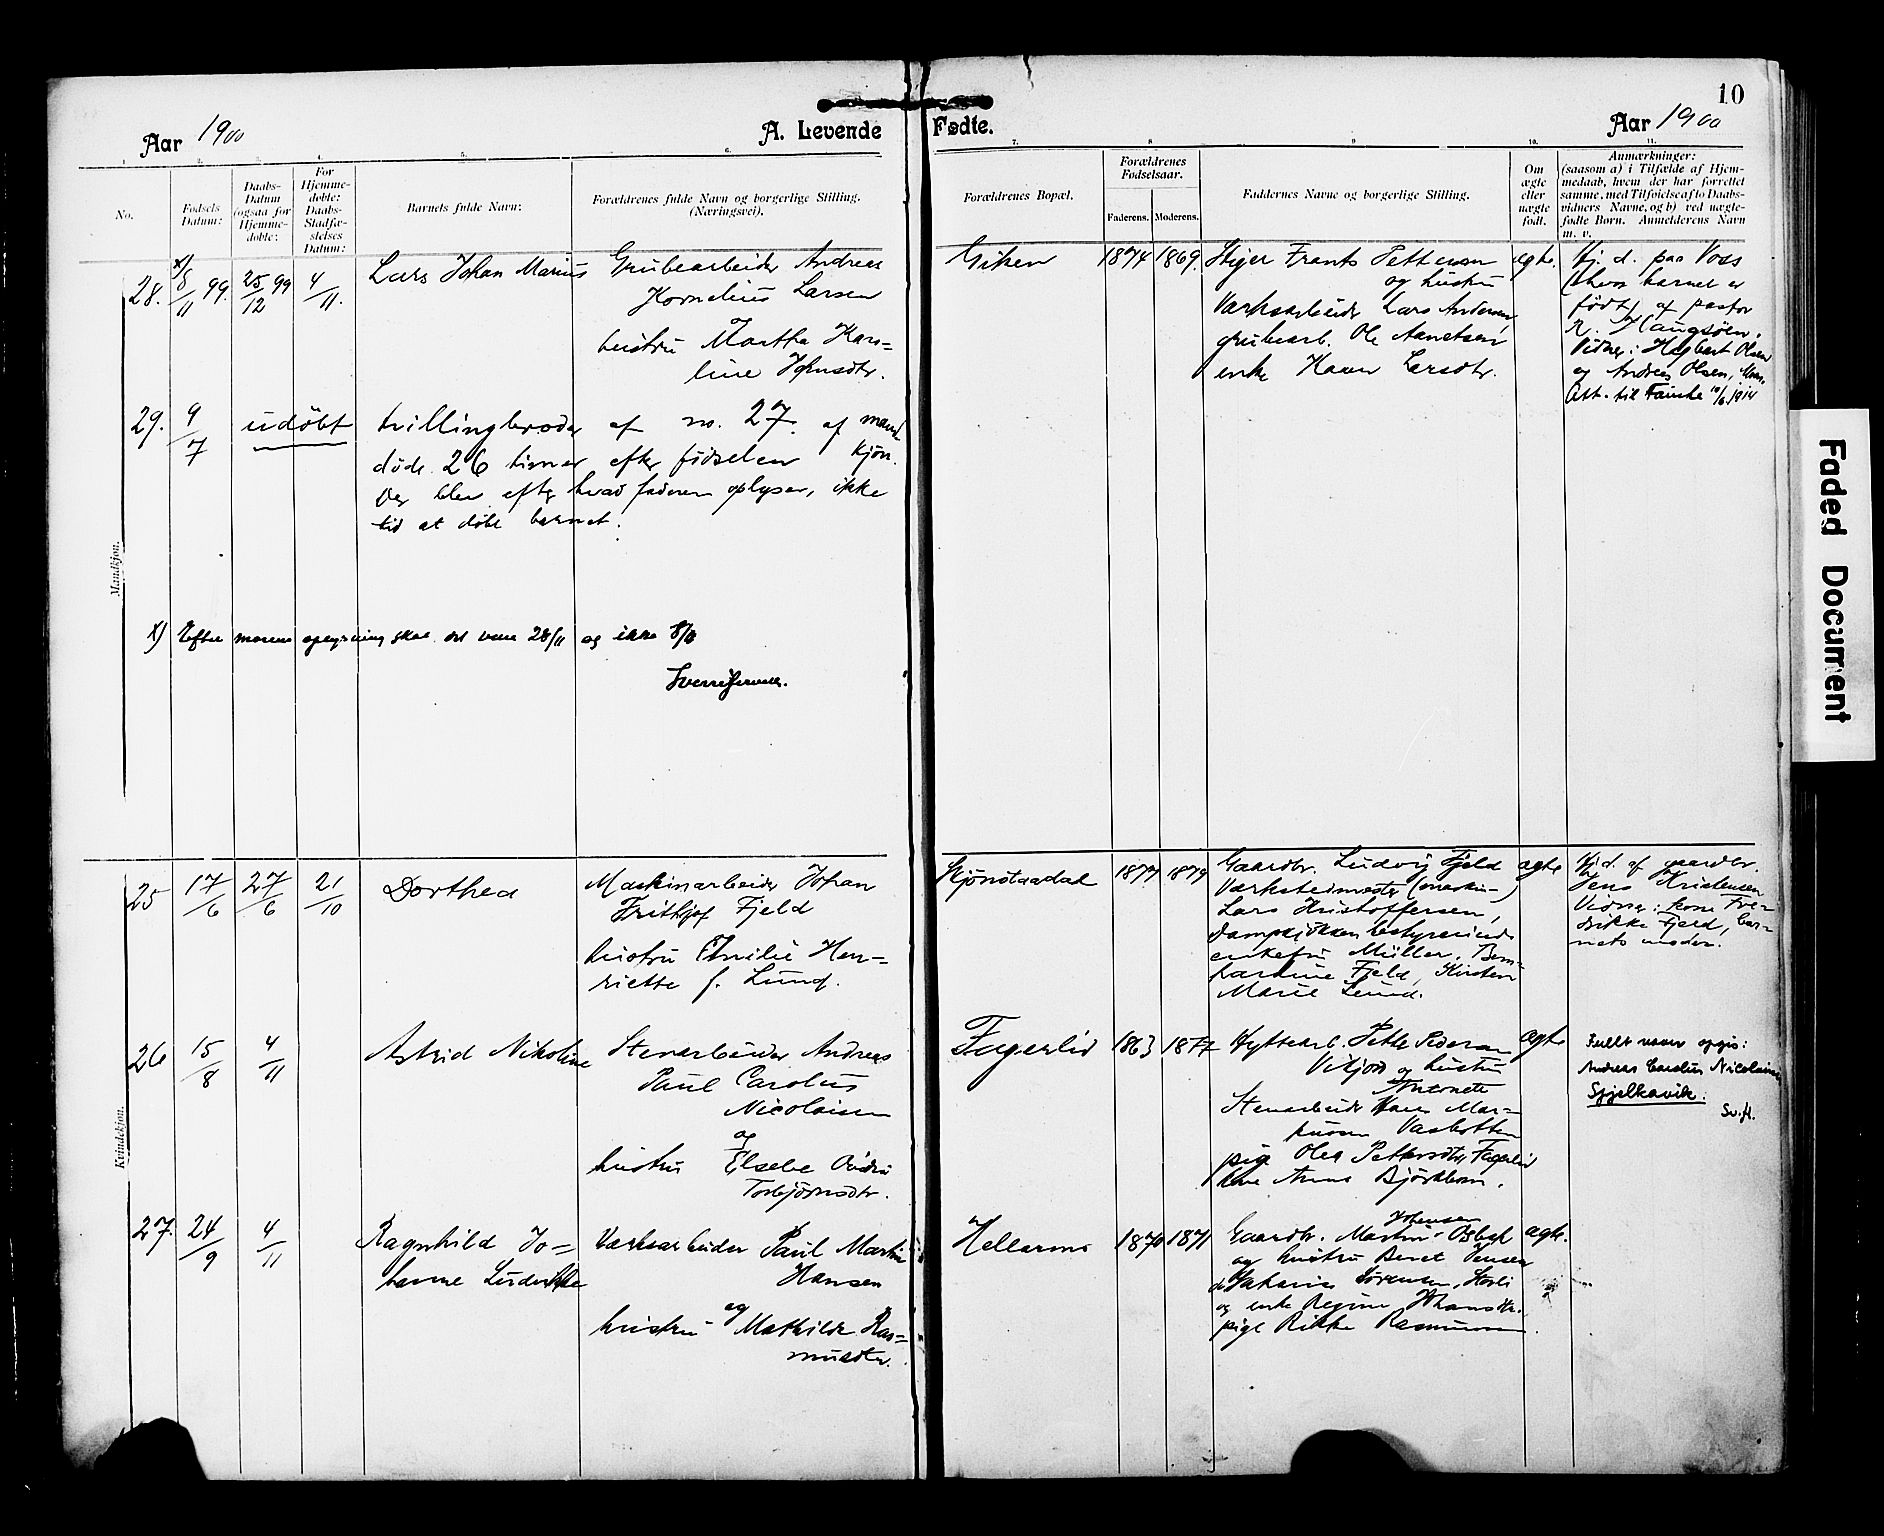 10
Aar 1900
A. Levende Fødte.
Aar 1900
1. 2. 3. 4. 5. 6. 7. 8 9 10. 11.
No.
Fødsels Datum:
Daabs-Datum (ogsaa for Hjemme-døbte:
For Hjemme-døbte: Daabs-Stadfæ-stelses Datum:
Barnets fulde Navn:
Forældrenes fulde Navn og borgerlige Stilling. (Næringsvei).
Forældrenes Bopæl.
Forældrenes Fødselsaar.
Faderens. Moderens.
Faddernes Navne og borgerlige Stilling.
Om ægte eller uægte født.
Anmærkninger:
(saasom a) i Tilfælde af Hjem-
medaab, hvem der har forrettet
samme, med Tilføielse af to Daabs-
vidners Navne, og b) ved uægte-
fødte Børn. Anmelderens Navn
m. v.
Mandkjøn.
28.
x) 8/11 99.
25/12 99
4/11.
Lars Johan Marius
Grubearbeider Andreas
Kornelius Larsen
hustru Martha Karo-
line Johnsdtr.
Giken
1874
1869.
Stiger Frants Pettersen
og hustru
Værksarbeider Lars Andersen
grubearb. Ole
enke Larsdtr.
ægte.
Hj. d. paa Voss
(hvor barnet er
født) af pastor
R. Haugsøen.
Vidner: Hagbart Olsen
og Andreas Olsen,
Att. til Fauske 10/6 1914
29.
9/7
udøbt
tvillingbroder af no. 27. af mand
døde 26 timer efter fødselen kjøn.
Der blev efter hvad faderen oplyser, ikke
tid at døbe barnet.
x) Efter morens oplysning skal det være 28/11 og ikke 8/11
Kvindekjøn.
25
17/6
27/6
21/10
Dorthea
Maskinarbeider Johan
Fritkjof Fjeld
hustru Emilie Hen-
riette f. Lund.
Skjønstuadal
1877
1879
Gaardbr. Ludvig Fjeld
Værkstedmester (maskin-)
Lars Kristoffersen,
Dampkjøkkenbestyrerinde
enkefru Müller, Bern-
hardine Fjeld, Kirsten
Marie Lund.
ægte
Hj. d. af gaardbr.
Jens Kristensen
Vidner: kone Fre-
drikke Fjeld, bar-
nets moder.
26
15/8
4/11
Astrid Nikoline
Stenarbeider Andreas
Paul Carolus
Nicolaisen
og
hustru Elsebe
Torbjørnsdtr.
Fagerlid
1863
1877
Hyttearb. Peder Pedersen
og hustru
Antonete
Stenarbeider Hans Mar-
kussen Vasbotten
pige Olea Pettersdtr. Fagerlid
kone Anna Bjørkbom.
ægte
Fullt navn opgis:
Andreas Carolus Nicolaisen
Spjelkavik.
Sv. H.
27.
24/9
4/11
Ragnhild Jo-
hanne Luderikke
Værksarbeider Paul Martin
Hansen
og
hustru Mathilde Ras-
musdtr.
Hellarmo
1870
1871
Johansen
Gaardbr. Martin
og hustru Beret Jensen
do Zakarias Sørensen,
og enke Regine Johansdtr.
pige Rikke Rasmussen.
ægte.
Faded Document